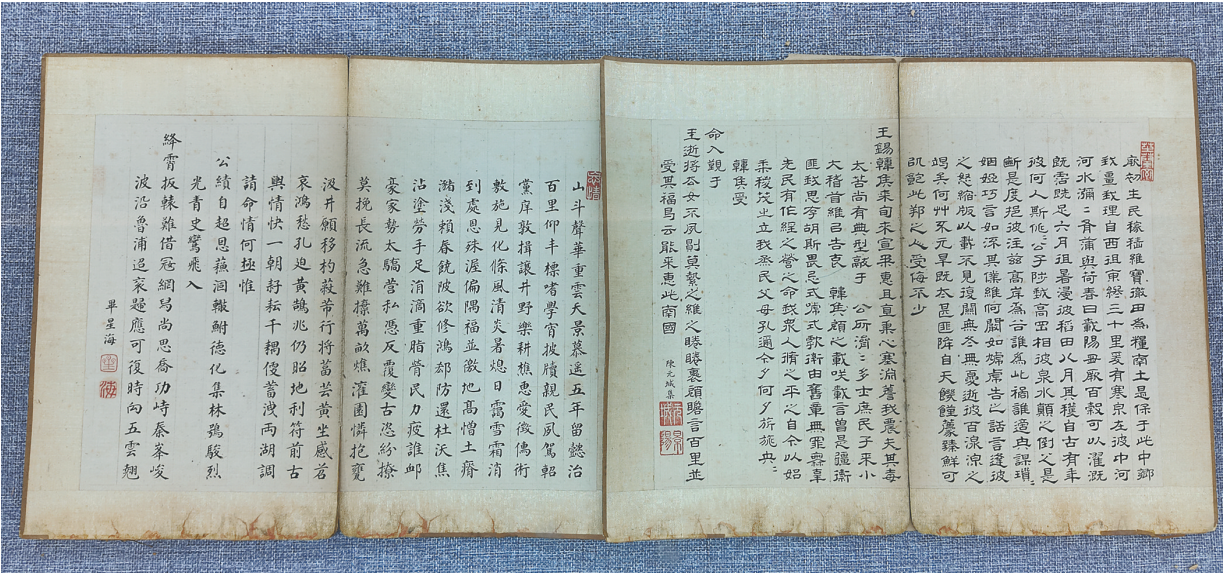 厥初生民稼穡維寶徹田為糧南土是保于此中鄉
我疆我理自西徂東終三十里爰有寒泉左彼中河
河水瀰二有蒲與荷春日載陽毋厥百穀可以濯溉
既霑既足六月徂暑漫彼稻田八月其穫自古有年
彼何人斯佌二公子陟我高罡相彼泉水顛之倒之是
斷是度挹彼注茲高岸為谷誰為此禍誰適與謀瑣二
姻婭巧言如流其儀維何闞如虓虎告之話言逢彼
之怒縮版以載不見復關無冬無夏逝彼百泉涼之
竭矣何艸不元旱既太甚匪降自天饑饉薦臻鮮可
飢飽此邦之人受侮不少
王錫韓侯來旬來宣秉惠且直秉心塞淵 我農夫其毒
太苦尚有典型敢于 公所濟二多士庶民子來小
大稽首維曰告哀 韓侯顧之載咲載言曾是彊禦
匪我思存胡斯畏忌式序式 率由舊章無罪無辜
先民有作經之營之命我眾人脩之平之自今以始
黍稷茂止立我烝民父母孔邇今夕何夕旂旐央二
韓侯受
命入覲于
王逝將去女不夙則莫縶之維之睠睠裹顧瞻言百里並
受其福曷云能來惠此南國
陳元城集
山斗聲華重雲天景慕遙五年留懿治
百里仰丰標嗜學宵披牘親民夙駕軺
黨庠敦揖讓井野樂耕樵惠愛徵儒術
敷施見化條風清炎暑熄日靄雪霜消
到處恩殊渥偏隅福並徼地高憎土瘠
瀦淺賴春饒陂欲修鴻郤防還杜沃焦
沾塗勞手足涓滴重脂膏民力疲誰卹
豪家勢太驕營私憑反覆變古恣紛撩
莫挽長流急難撩萬畝燋灌園憐抱甕
汲井願移杓菽芾行將菑芸黃坐感苕
哀鴻愁孔迫黃鵠兆仍昭地利符前古
輿情快一朝耔耘千耦侵蓄洩兩湖調
請命情何極惟
公績自超恩蘓涸轍鮒德化集林鴞駿烈
光青史鸞飛入
絳霄扳轅難借寇綱舄尚思喬功峙秦峯峻
波沿魯浦迢衮題應可復時向五雲翹
畢星海